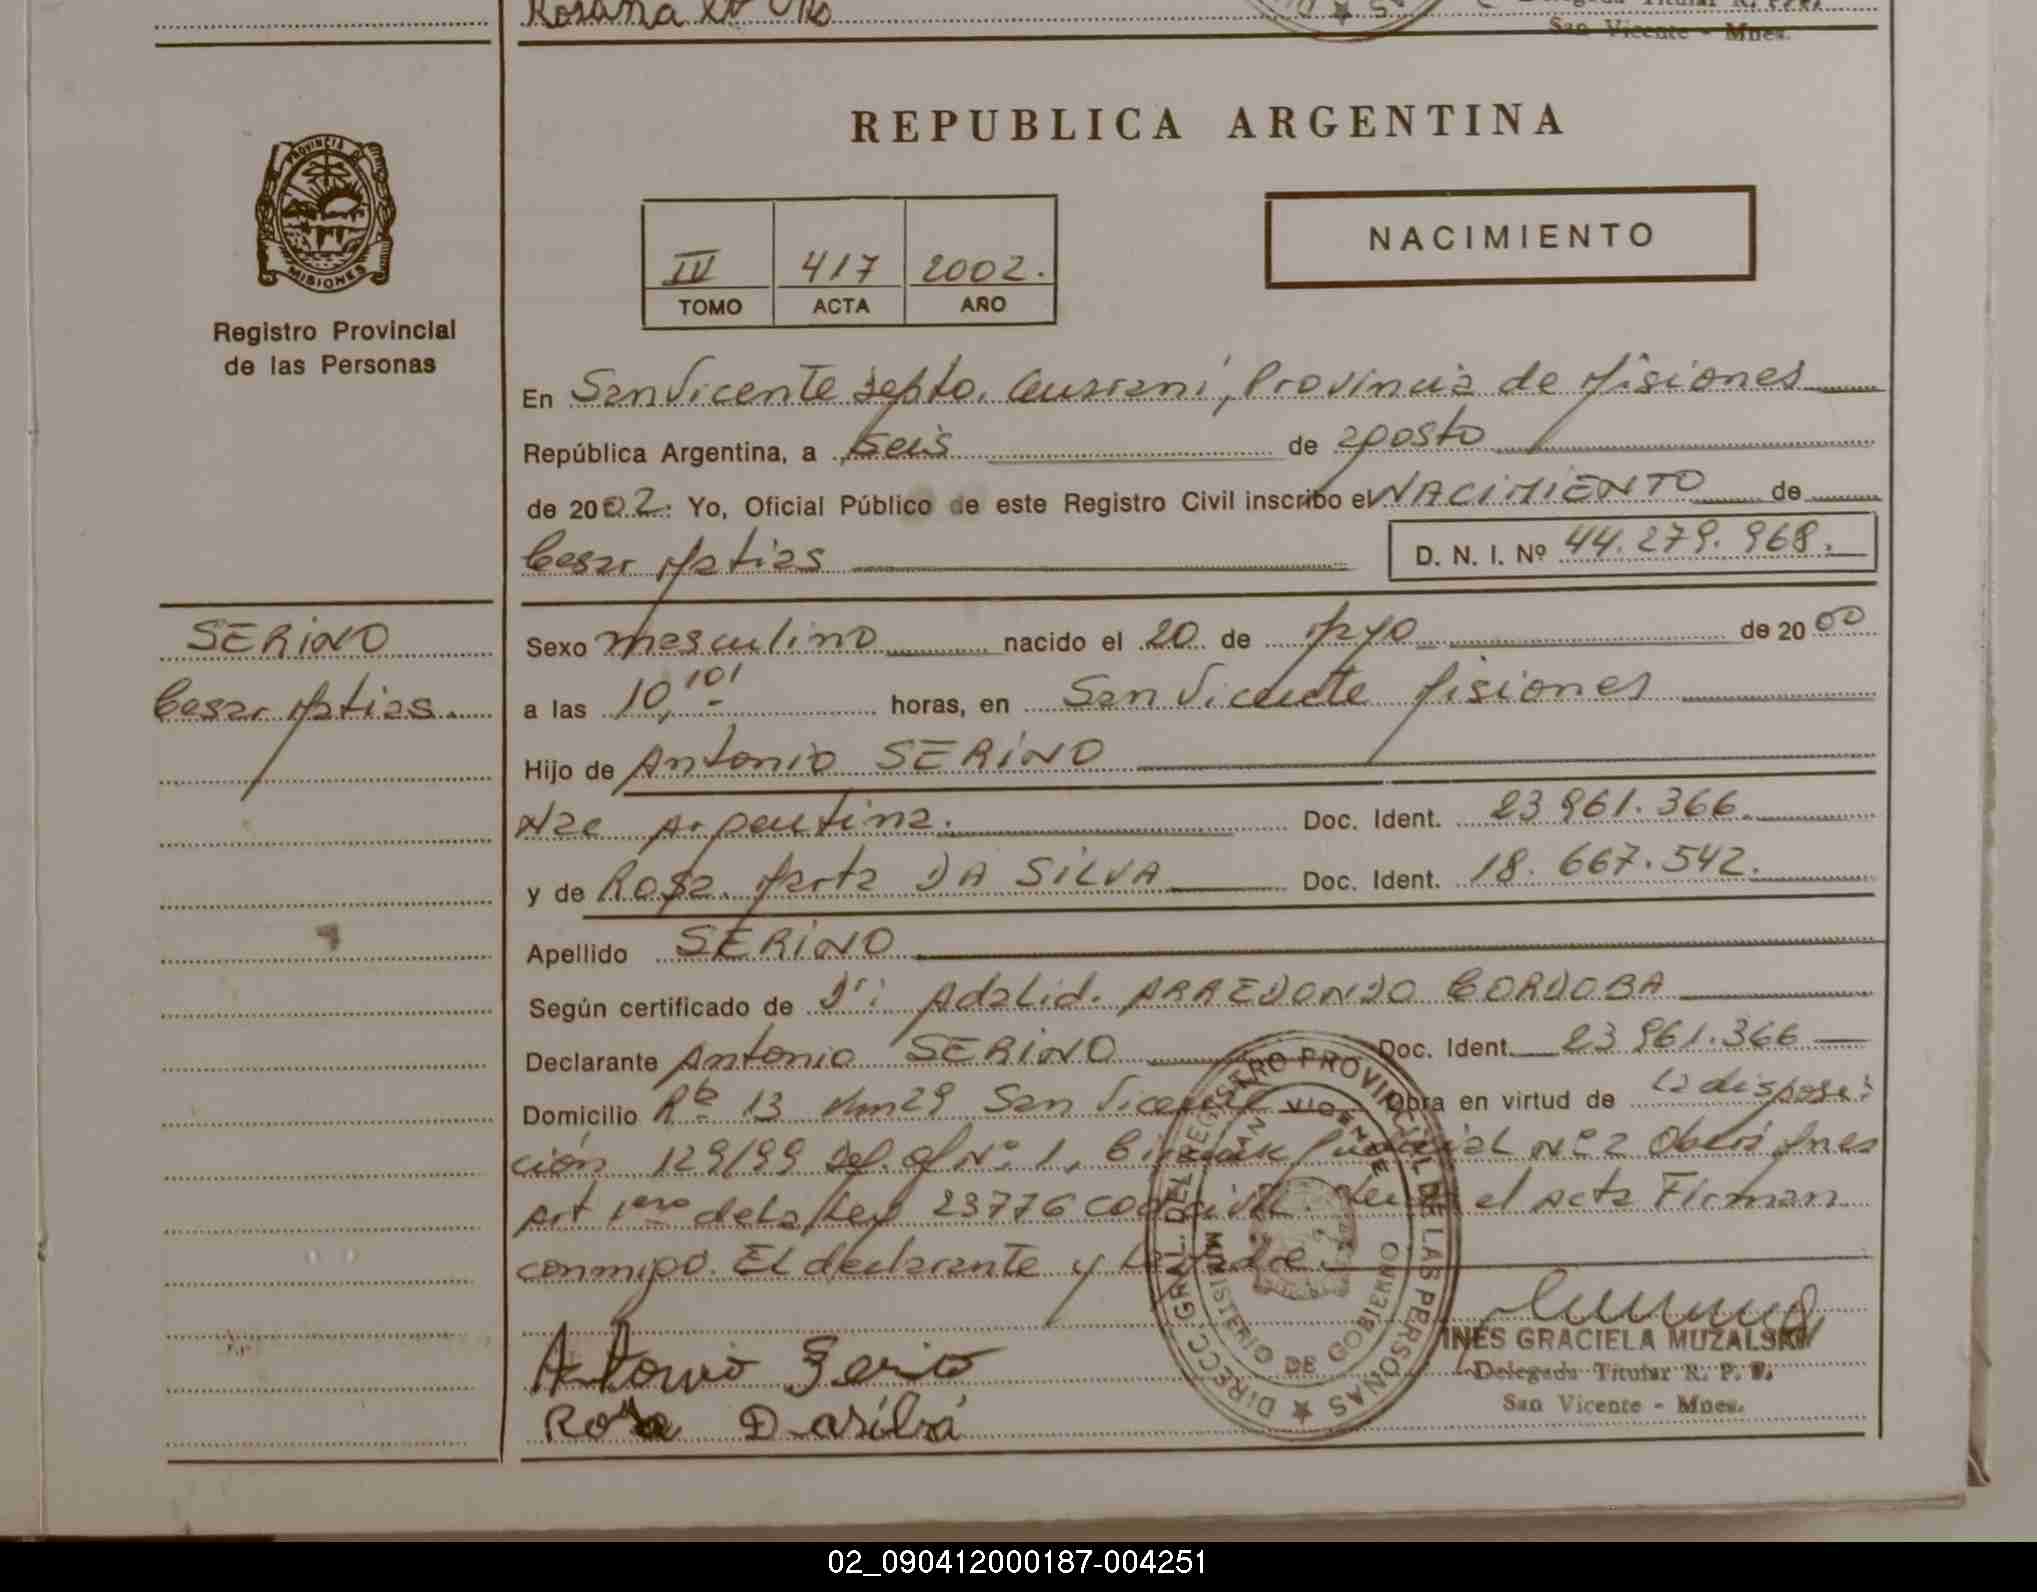 Rosana
San Vicente - Mnes.
REPUBLICA ARGENTINA
PROVINCIA DE
MISIONES
Registro Provincial
de las Personas
III 417 2002.
TOMO ACTA AÑO
NACIMIENTO
En San Vicente Depto. Guarani, Provincia de Misiones
República Argentina, a seis de agosto
de 2002: Yo, Oficial Público de este Registro Civil inscribo el NACIMIENTO de
Cesar Matias D. N. I. Nº 44.279.968.
SERINO
Cesar Matias.
Sexo masculino nacido el 20 de Mayo de 2000
a las 10,10' horas, en San Vicente Misiones
Hijo de Antonio SERINO
Nac Argentina. Doc. Ident. 23 961.366.
y de Rosa Marta DA SILVA Doc. Ident. 18.667.542.
Apellido SERINO
Según certificado de Dr: Adalid. ARREDONDO CORDOBA
Declarante Antonio SERINO Doc. Ident. 23 961.366
Domicilio Rta 13 Km 29 San Vicente Obra en virtud de la disposi
ción 129/99 Def. Of Nº 1, Judicial Nº 2 Obera Mnes
Art 1ero de la Ley 23776 el acta Firman
conmigo. El declarante y la Madre.
Antonio Serino
Rosa Dasilva
DIRECC. GRAL. DEL REGISTRO PROVINCIAL DE LAS PERSONAS
MINISTERIO DE GOBIERNO
SAN VICENTE
INES GRACIELA MUZALSKI
Delegada Titular R. P. P.
San Vicente - Mnes.
02_090412000187-004251